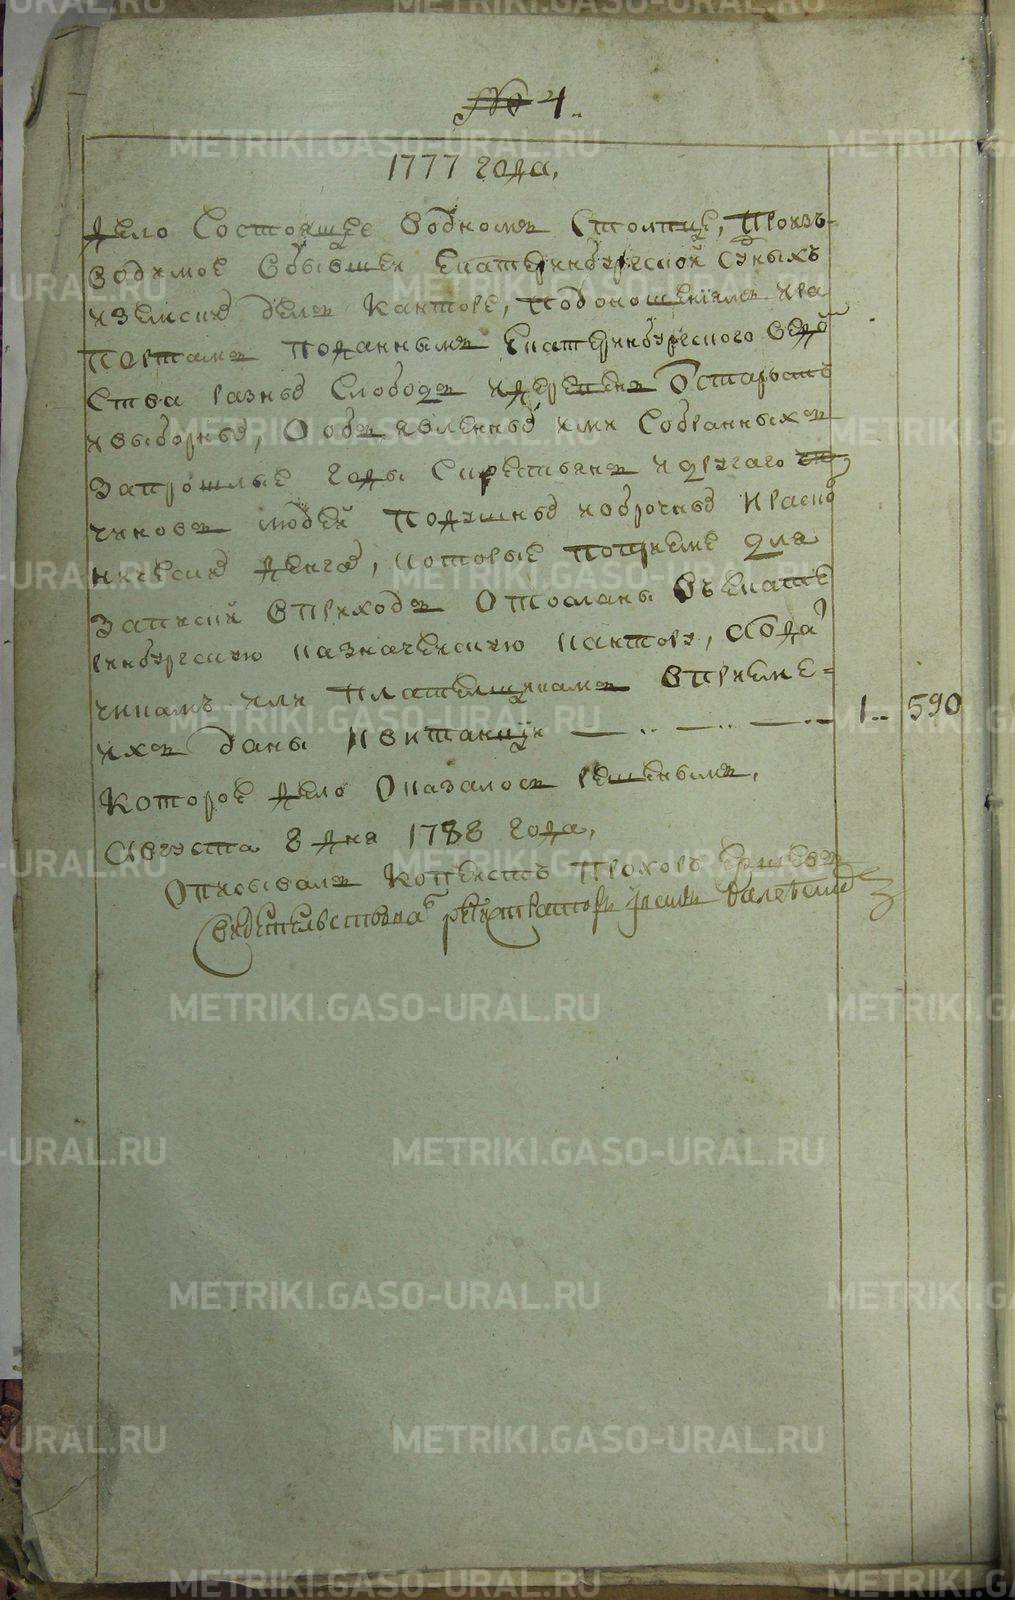 № 4..
1777 года,
Дело Состоящее водномъ Столпце, Произъ-
водимое вбывшей Екатеринбургской Судныхъ
иземских делъ Канторе, подоношениямъ ира
портамъ поданнымъ Екатеринбургского ведом
Ства разных Слободъ идеревень остаростъ
ивыборных, Ообъявленных ими Собранныхъ
Запрошлые годы Скрестьянъ идругаго
чиновъ людей подушных иоброчных
ническия денгах, которые поприеме для
Записки вприходъ Отосланы въекате
ринбургскую казначейскую кантору, аода
чикамъ или плательщикамъ вприеме-
ихъ даны квитанции — .. — .. — .. 1.. 590
Которое дело Оказалось решенымъ,
Августа 8 дня 1788 года,
Описывалъ Копеистъ Прохоръ
Свидетельствовал регистраторъ
METRIKI.GASO-URAL.RU